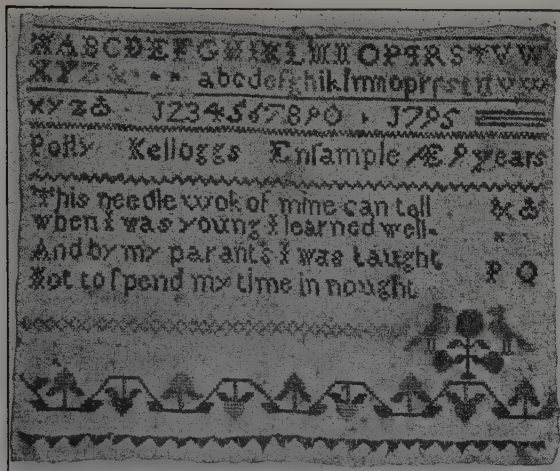 ABCDEFGHIKLMNOPQRSTVW
XYZ & abcdefghiklmnopqrſstuvw
xyz& 1234567890 1795
Polly Kelloggs Enſample Æ 9 years
This needle wok of mine can tell &
when I was young I learned well.
And by my parants I was taught P Q
Not to ſpend my time in nought